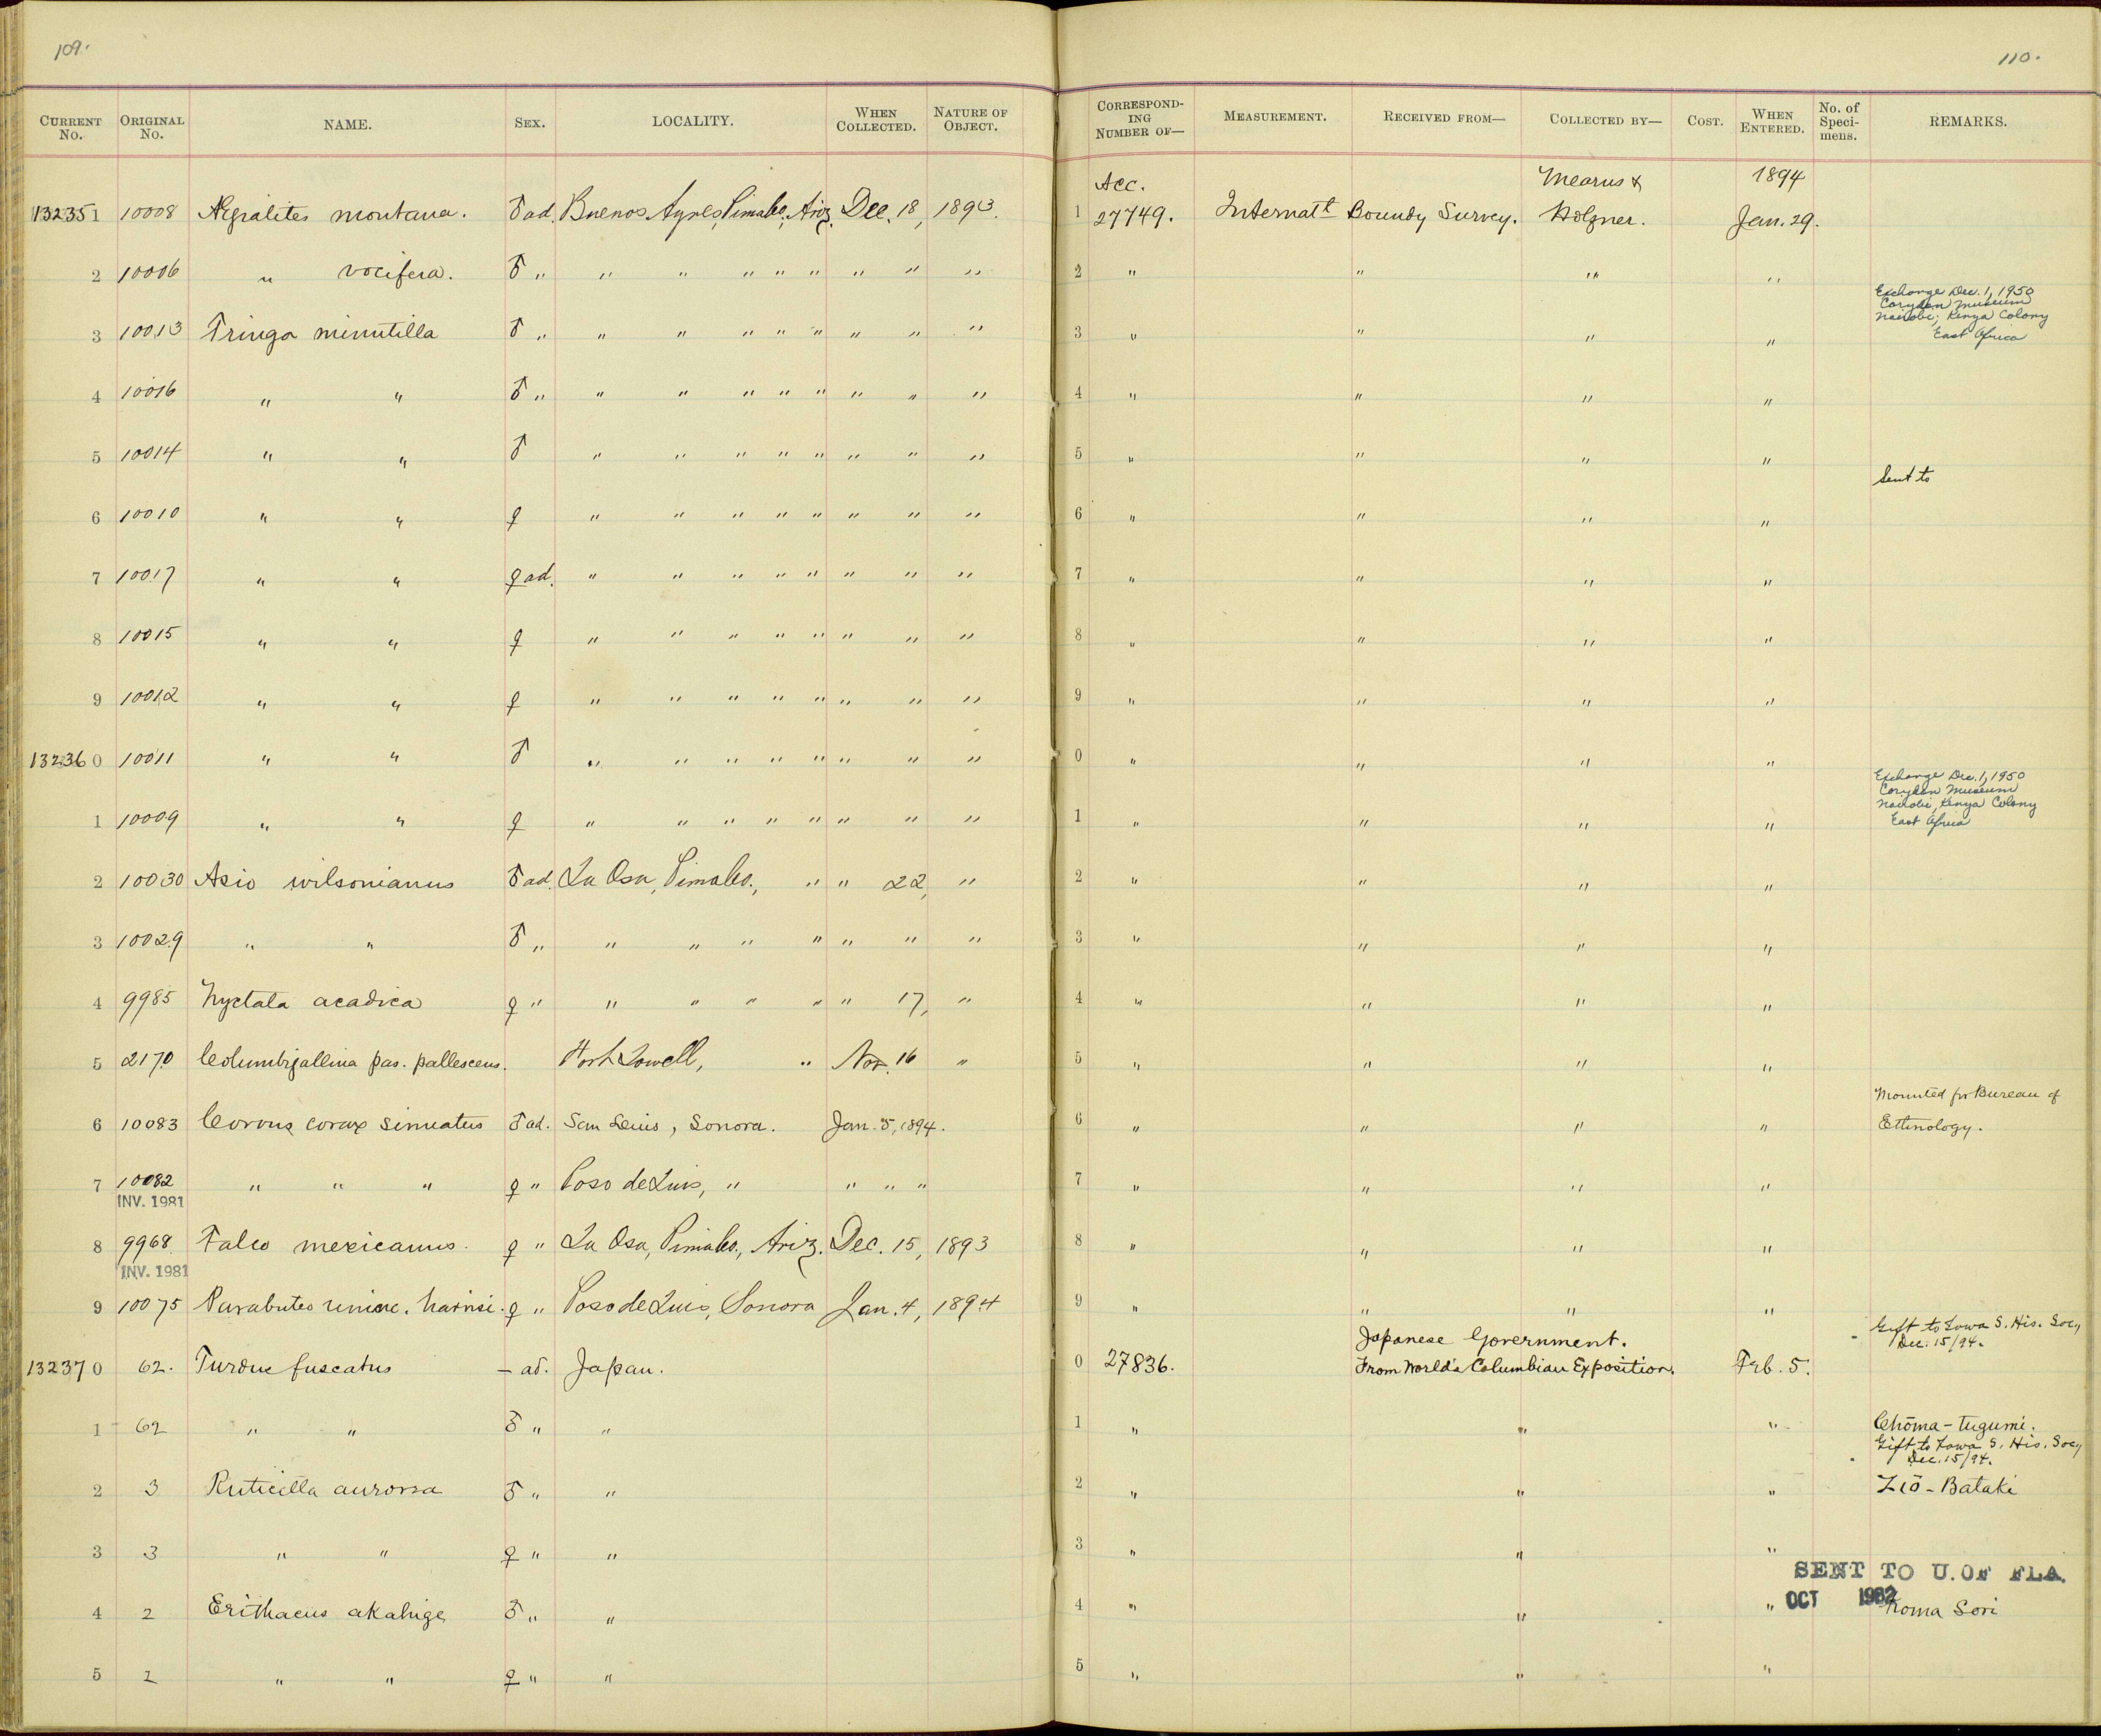 109.
CURRENT No. ORIGINAL No. NAME. SEX. LOCALITY. WHEN COLLECTED. NATURE OF OBJECT.
132351 10008 Ægialites montana. ♂ ad. Buenos Ayres, Pima Co., Ariz. Dec. 18, 1893.
2 10006 " vocifera. ♂ " " " " " " " " "
3 10013 Tringa minutilla ♂ " " " " " " " " "
4 10016 " " ♂ " " " " " " " " "
5 10014 " " ♂ " " " " " " " "
6 10010 " " ♀ " " " " " " " "
7 10017 " " ♀ ad. " " " " " " " "
8 10015 " " ♀ " " " " " " " "
9 10012 " " ♀ " " " " " " " "
132360 10011 " " ♂ " " " " " " " "
1 10009 " " ♀ " " " " " " " "
2 10030 Asio wilsonianus ♂ ad. La Osa, Pima Co., " " 22, "
3 10029 " " ♂ " " " " " " " "
4 9985 Nyctala acadica ♀ " " " " " " 17, "
5 2170 Columbigallina pas. pallescens. Fort Lowell, " Nov. 16 "
6 10083 Corvus corax sinuatus ♂ ad. San Luis, Sonora. Jan. 5, 1894.
7 10082 " " " ♀ " Poso de Luis, " " " "
INV. 1981
8 9968 Falco mexicanus. ♀ " La Osa, Pima Co., Ariz. Dec. 15, 1893
INV. 1981
9 10075 Parabuteo uninc. harrisi. ♀ " Poso de Luis, Sonora Jan. 4, 1894
132370 62. Turdus fuscatus — ad. Japan.
1 62 " " ♂ " "
2 3 Ruticilla aurorea ♂ " "
3 3 " " ♀ " "
4 2 Erithacus akahige ♂ " "
5 2 " " ♀ " "
110.
CORRESPONDING NUMBER OF— MEASUREMENT. RECEIVED FROM— COLLECTED BY— COST. WHEN ENTERED. No. of Specimens. REMARKS.
Acc. Mearns & 1894
1 27749. Internatl Boundy Survey. Holzner. Jan. 29.
2 " " " "
Exchange Dec. 1, 1950
Coryndon Museum
Nairobi, Kenya Colony
East Africa
3 " " " "
4 " " " "
5 " " " "
Sent to
6 " " " "
7 " " " "
8 " " " "
9 " " " "
0 " " " "
Exchange Dec. 1, 1950
Coryndon Museum
Nairobi, Kenya Colony
East Africa
1 " " " "
2 " " " "
3 " " " "
4 " " " "
5 " " " "
Mounted for Bureau of
6 " " " " Ethnology.
7 " " " "
8 " " " "
9 " " " "
Japanese Government.
Gift to Iowa S. His. Soc,
Dec. 15/94.
0 27836. From World's Columbian Exposition. Feb. 5.
1 " " " Chōma-tugumi.
Gift to Iowa S. His. Soc,
Dec. 15/94.
2 " " " Ziō-Bataki
3 " " "
SENT TO U. OF FLA.
OCT 1982
4 " " " Koma Sori
5 " " "